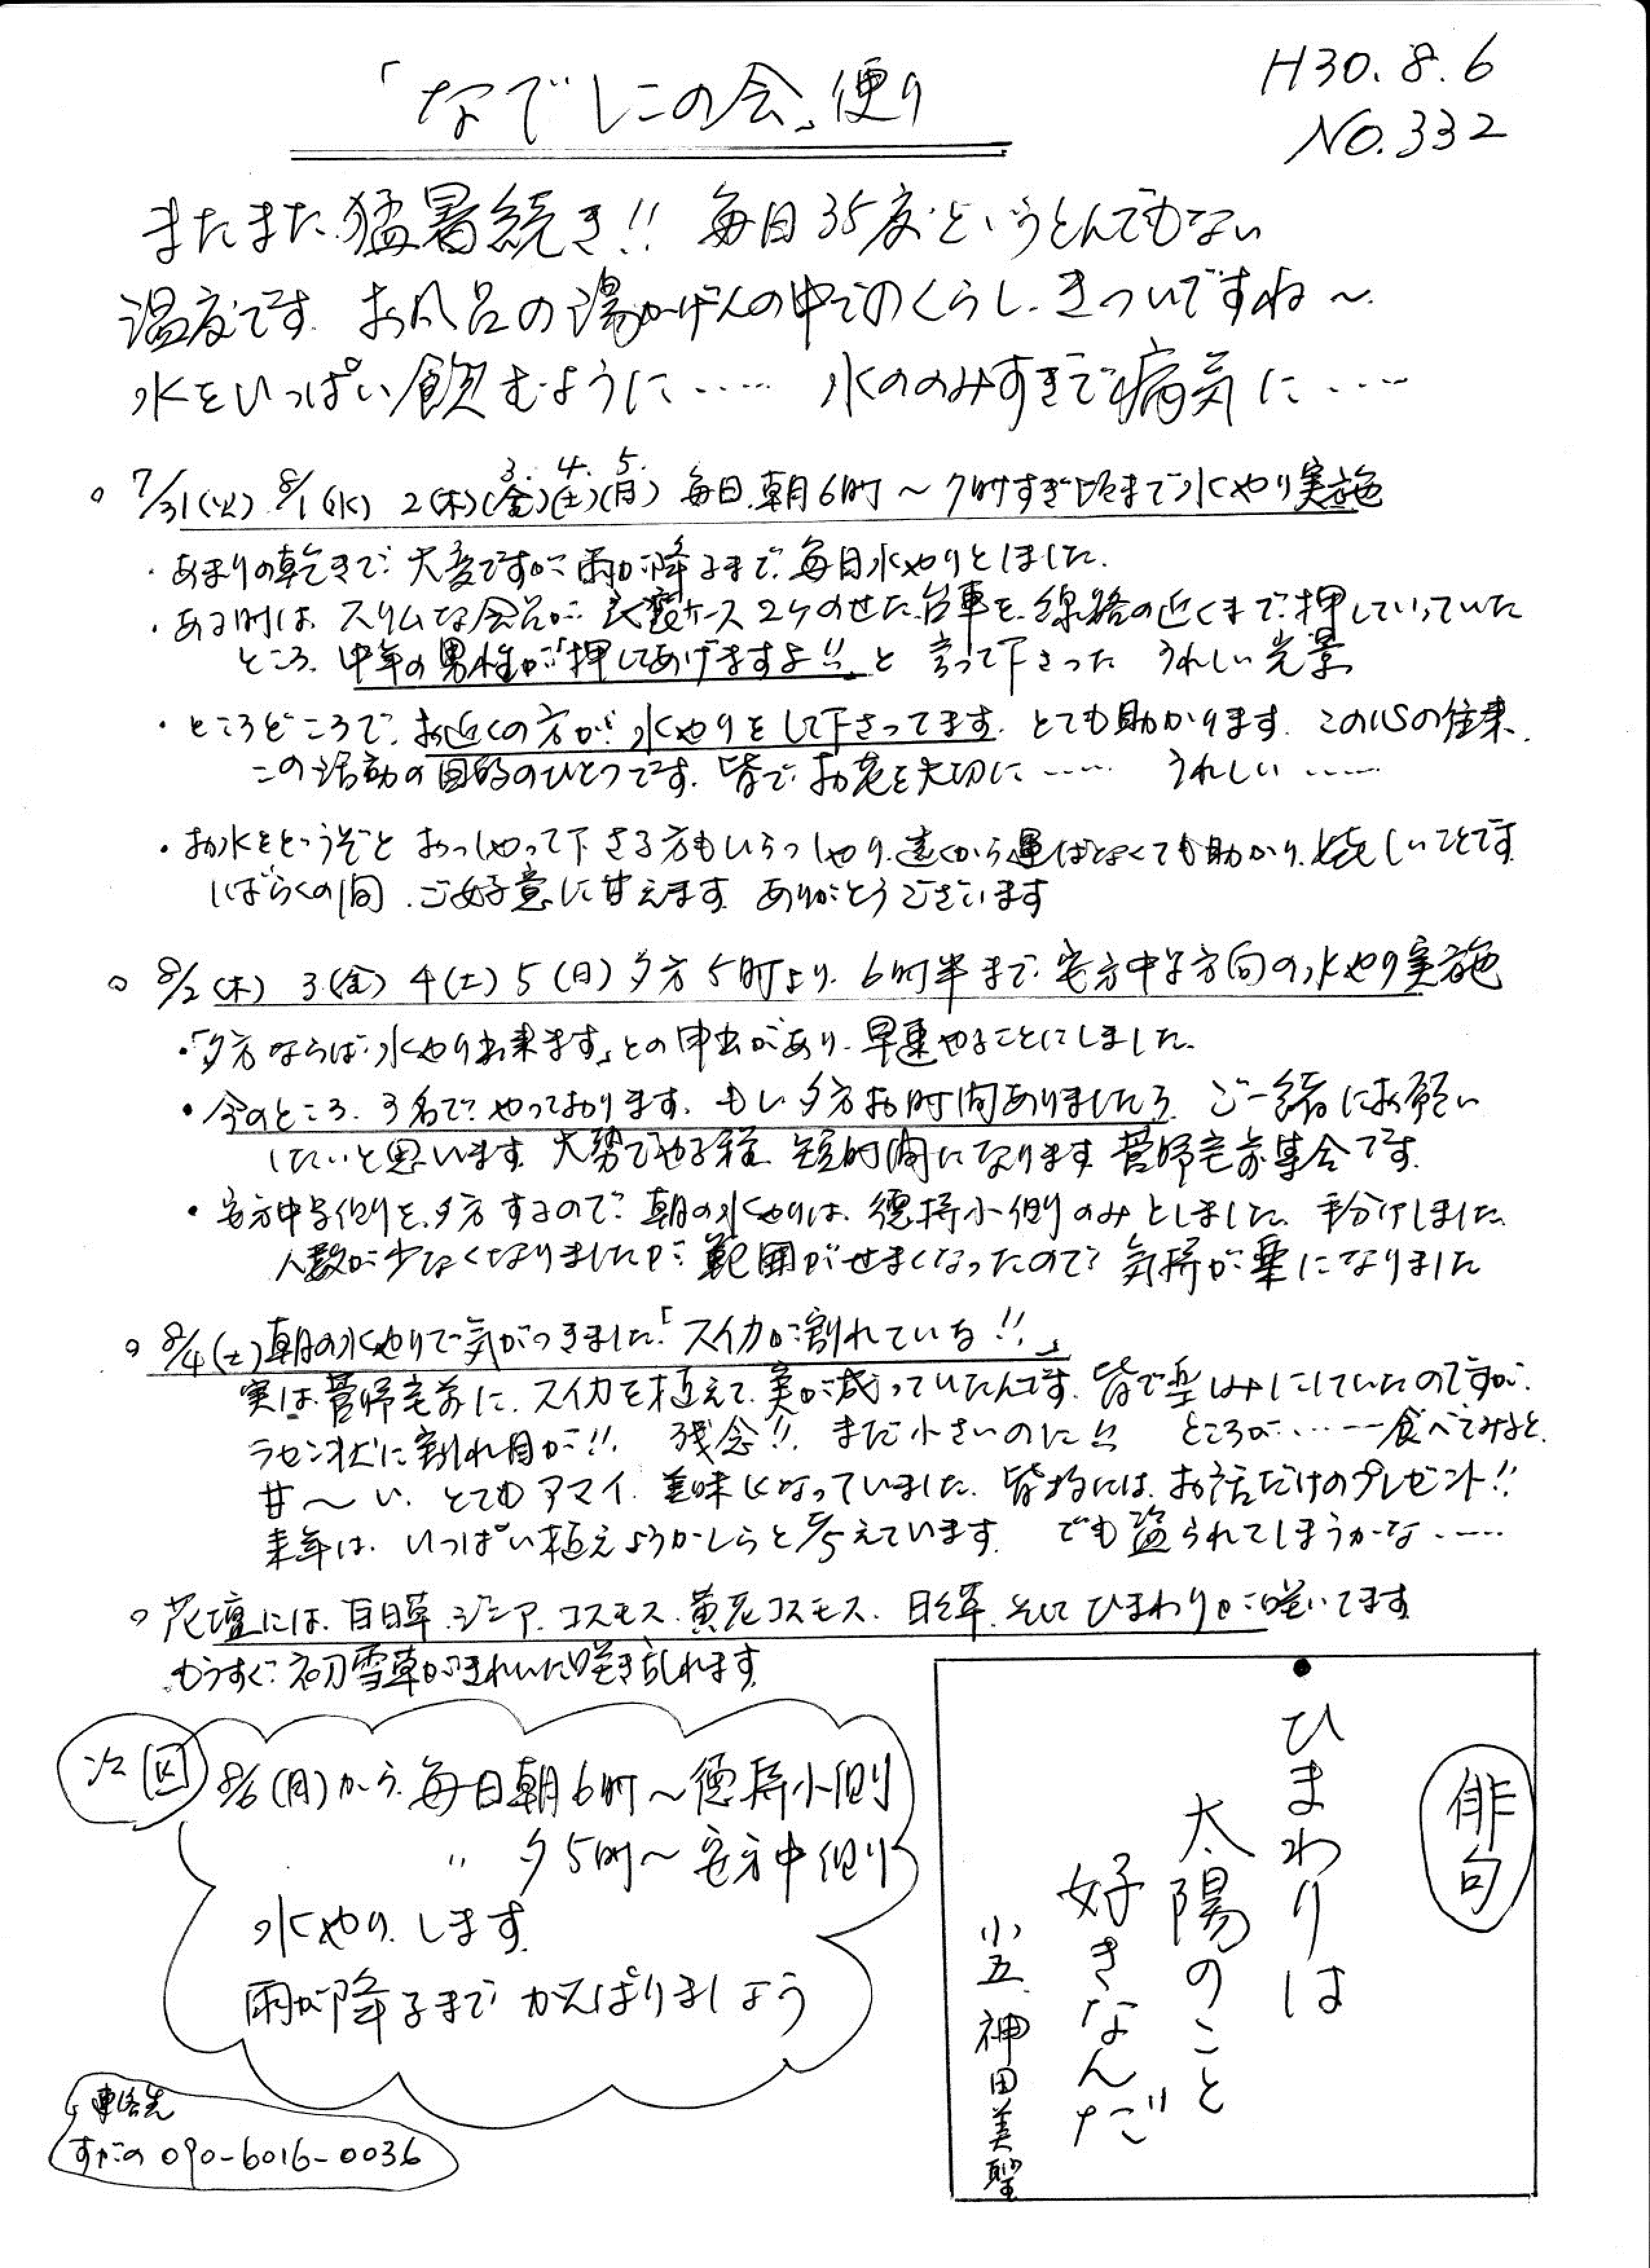 「なでしこの会」便り
H30.8.6
NO.332
またまた猛暑続き!! 毎日35度というとんでもない
温度です。お風呂の湯かげんの中でのくらし、きついですね〜
水をいっぱい飲むように…… 水ののみすぎで病気に……
○ 7/31(火) 8/1(水) 2(木) 3(金) 4(土) 5(日) 毎日、朝6時〜7時すぎ頃まで水やり実施
・あまりの乾きで、大変ですが、雨が降るまで、毎日水やりとしました。
・ある時は、スリムな会員が、衣裳ケース2ケのせた台車を、線路の近くまで、押していっていた
ところ、中年の男性が「押してあげますよ!!」と 言って下さった うれしい光景
・ところどころで、お近くの方が、水やりをして下さってます。とても助かります。この心の往来、
この活動の目的のひとつです。皆で、お花を大切に…… うれしい……
・お水をどうぞと おっしゃって下さる方もいらっしゃり、遠くから運ばなくても助かり、嬉しいことです
しばらくの間、ご好意に甘えます。ありがとうございます
○ 8/2(木) 3(金) 4(土) 5(日) 夕方5時より、6時半まで、安方中学方向の水やり実施
・「夕方ならば、水やり出来ます」との申出があり、早速やることにしました。
・今のところ、3名で、やっております。もし夕方お時間ありましたら、ご一緒にお願い
したいと思います。大勢でやる程、短時間になります。菅野宅前集合です。
・安方中学側を、夕方するので、朝の水やりは、徳持小側のみとしました。手分けしました。
人数が少なくなりましたが、範囲がせまくなったので、気持が楽になりました
○ 8/4(土)朝の水やりで気がつきました。「スイカが割れている!!」
実は、菅野宅前に、スイカを植えて、実が成っていたんです。皆で楽しみにしていたのですが、
ラセン状に割れ目が!! 残念!! まだ小さいのに!! ところが……食べてみると、
甘〜い、とてもアマイ、美味しくなっていました。皆様には、お話だけのプレゼント!!
来年は、いっぱい植えようかしらと考えています。 でも盗られてしまうかな……
○ 花壇には、百日草、ジニア、コスモス、黄花コスモス、日々草、そして ひまわりが咲いてます。
もうすぐ、初雪草がきれいに咲き乱れます。
次回
8/6(月)から、毎日朝6時〜徳持小側
〃 夕5時〜安方中側
水やりします。
雨が降るまで がんばりましょう
連絡先
すがの 090-6016-0036
俳句
ひまわりは
太陽のこと
好きなんだ
小五 神田美聖